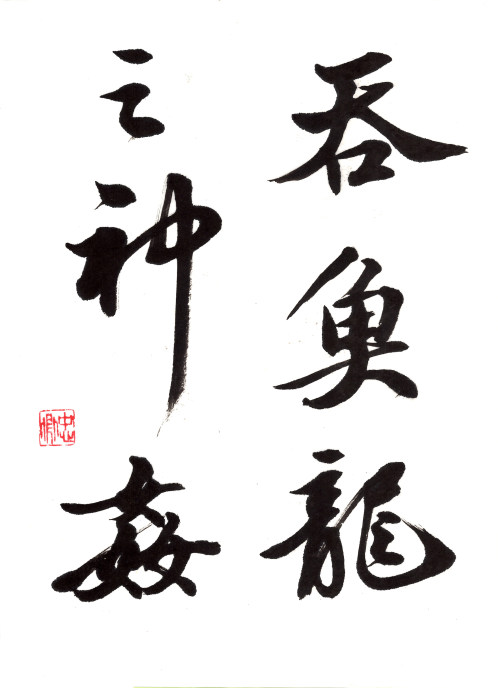 吞魚龍
之神姦